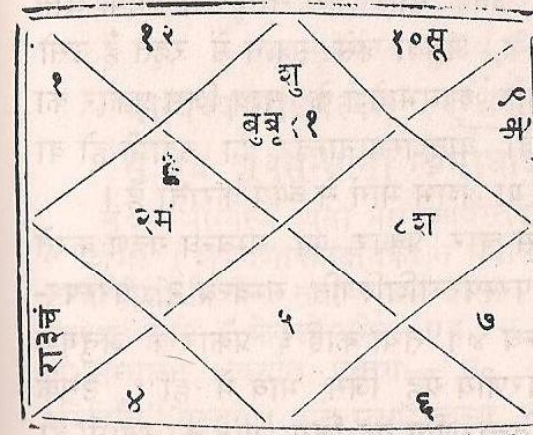 १२
१०सू
१
शु
बुबृ ११
के ९
२मं
८श
रा३चं
५
७
४
६